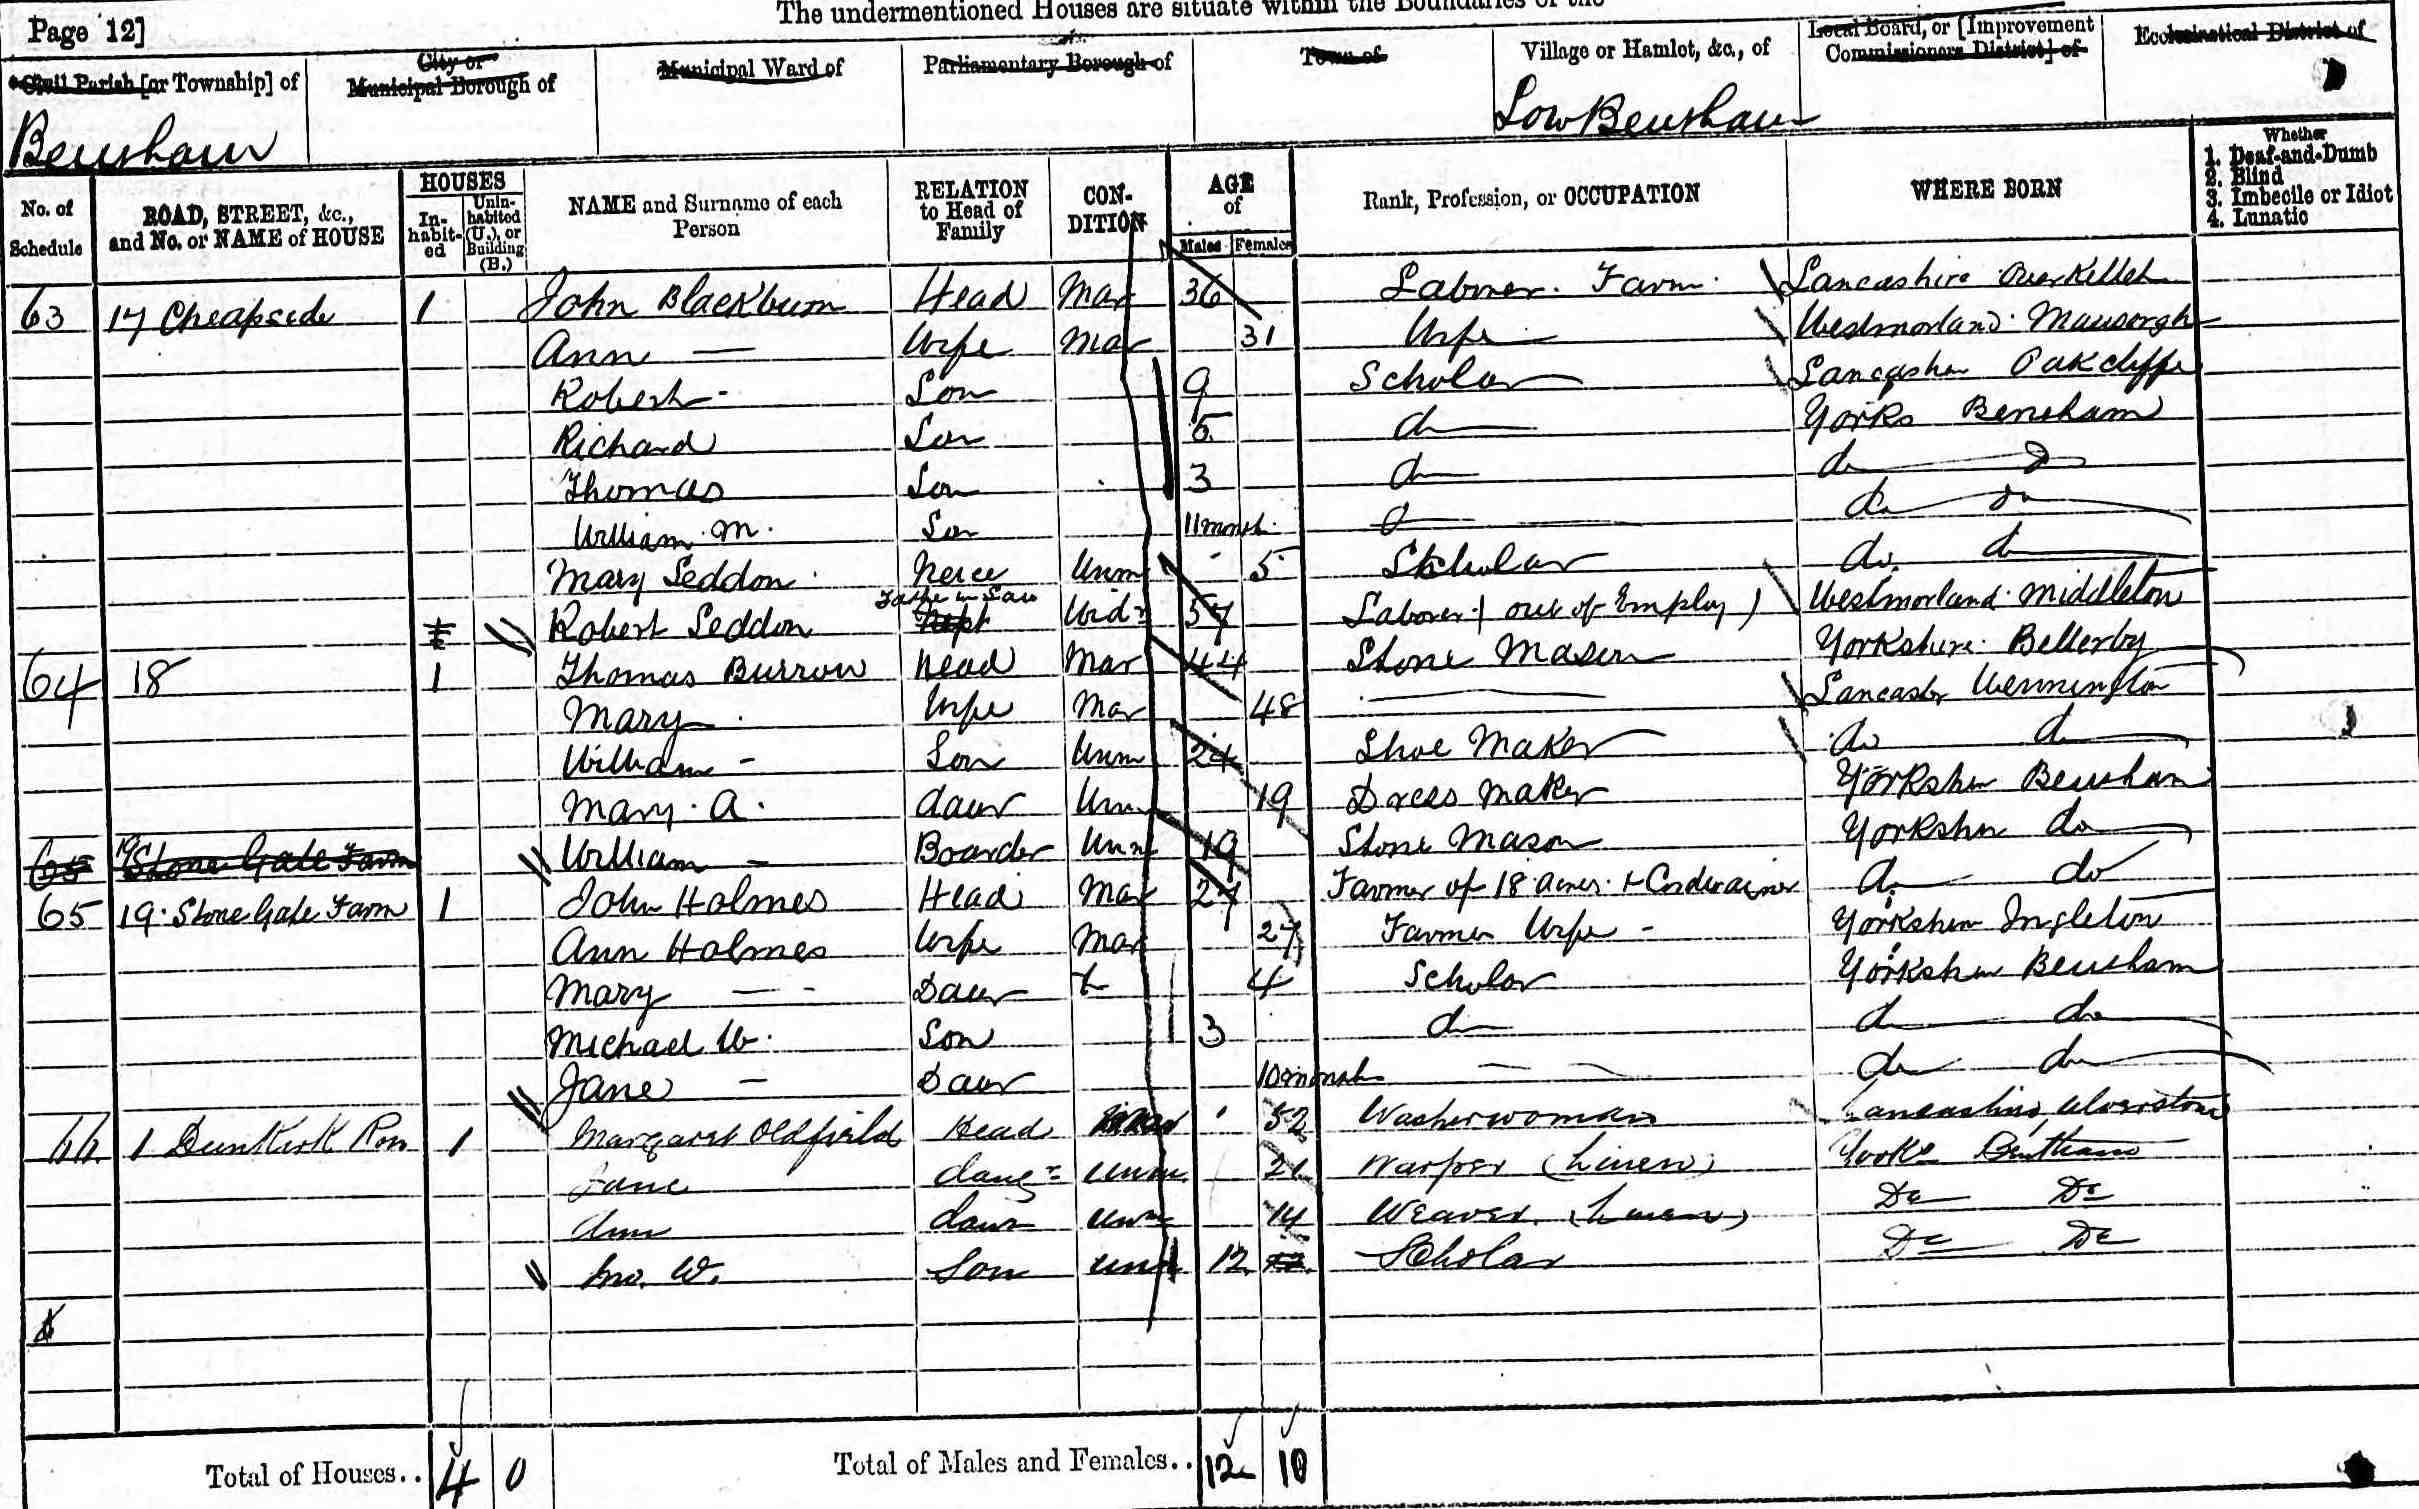 The undermentioned Houses are situate within the Boundaries of the
Page 12]
Civil Parish [or Township] of
City or Municipal Borough of
Municipal Ward of
Parliamentary Borough of
Town of
Village or Hamlet, &c., of
Local Board, or [Improvement Commissioners District] of
Ecclesiastical District of
Bensham
Low Bensham
No. of Schedule
ROAD, STREET, &c., and No. or NAME of HOUSE
HOUSES
In-habit-ed
Unin-habited (U.), or Building (B.)
NAME and Surname of each Person
RELATION to Head of Family
CON-DITION
AGE of
Males Females
Rank, Profession, or OCCUPATION
WHERE BORN
Whether
1. Deaf-and-Dumb
2. Blind
3. Imbecile or Idiot
4. Lunatic
63 17 Cheapside 1 John Blackburn Head Mar 36 Laborer. Farm. Lancashire Over Kellet
Ann — Wife Mar 31 Wife Westmorland Mansergh
Robert - Son 9 Scholar Lancashire Oakcliffe
Richard Son 5 do Yorks Bensham
Thomas Son 3 do do do
William M. Son 11 month do do do
Mary Seddon Neice Unm 5 Scholar do. do
Robert Seddon Father in Law Widr 57 Laborer (out of Employ) Westmorland Middleton
64 18 1 Thomas Burrow Head Mar 44 Stone Mason Yorkshire Bellerby
Mary Wife Mar 48 Lancaster Wennington
William - Son Unm 24 Shoe Maker do do
Mary. A. daur Unm 19 Dress Maker Yorkshire Bensham
65 19 Stone Gate Farm William — Boarder Unm 19 Stone Mason Yorkshire do
65 19. Stone Gate Farm 1 John Holmes Head Mar 27 Farmer of 18 acres & Cordwainer do do
Ann Holmes Wife Mar 27 Farmer Wife - Yorkshire Ingleton
Mary — - Daur 4 Scholar Yorkshire Bensham
Michael W. Son 3 do do do
Jane — Daur 10 months do do
66. 1 Dunkirk Row 1 Margaret Oldfield Head 52 Washerwoman Lancashire, Ulverstone
Jane daugr unm. 21 Warper (Linen) Yorks Bentham
Ann daur unm 14 Weaver (Linen) Do Do
Jno. W. Son unm 12 Scholar Do Do
Total of Houses.. 4 0
Total of Males and Females.. 12 10